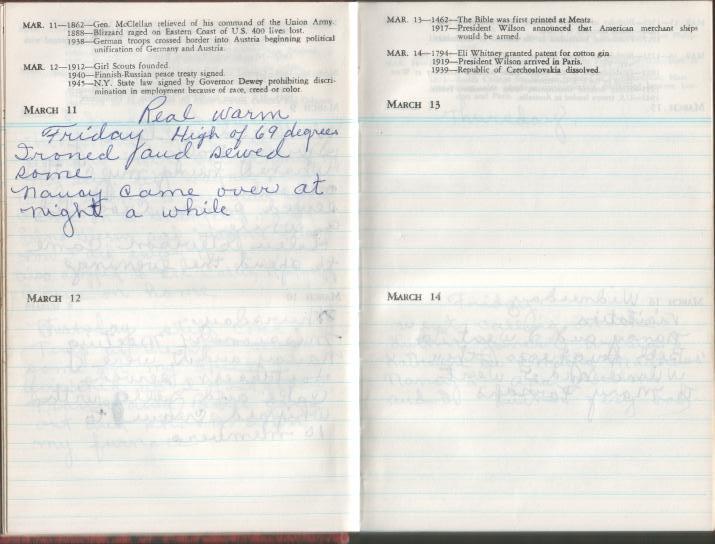 MAR. 11—1862—Gen. McClellan relieved of his command of the Union Army.
1888—Blizzard raged on Eastern Coast of U.S. 400 lives lost.
1938—German troops crossed border into Austria beginning political
unification of Germany and Austria.
MAR. 12—1912—Girl Scouts founded.
1940—Finnish-Russian peace treaty signed.
1945—N.Y. State law signed by Governor Dewey prohibiting discri-
mination in employment because of race, creed or color.
MARCH 11
Real warm
Friday High of 69 degrees
Ironed and sewed
some
Nancy came over at
night a while
MARCH 12
MAR. 13—1462—The Bible was first printed at Mentz.
1917—President Wilson announced that American merchant ships
would be armed.
MAR. 14—1794—Eli Whitney granted patent for cotton gin.
1919—President Wilson arrived in Paris.
1939—Republic of Czechoslovakia dissolved.
MARCH 13
MARCH 14